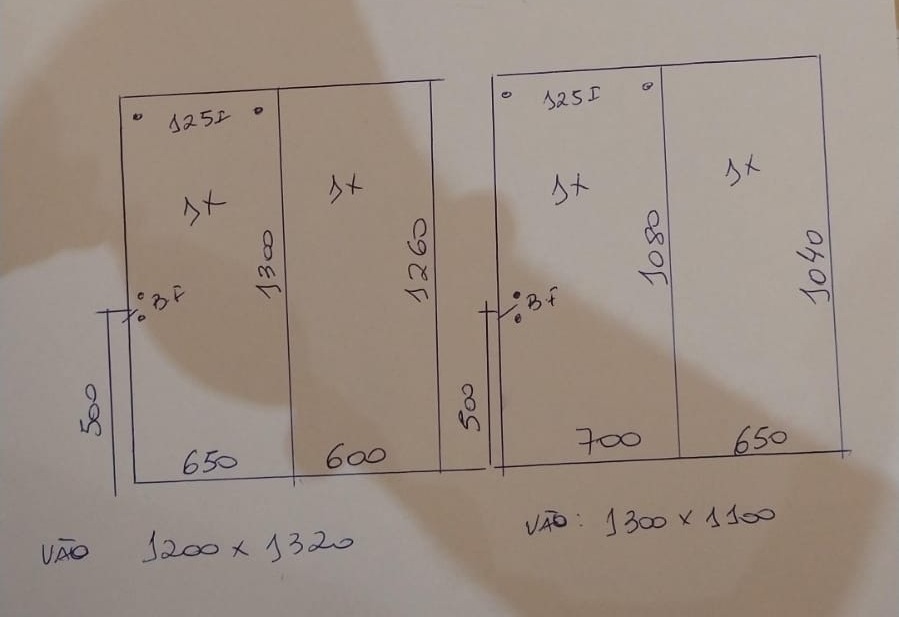 125I
1X
1X
1300
1260
BF
500
650
600
VÃO 1200 x 1320
125I
1X
1X
1080
1040
BF
500
700
650
VÃO: 1300 x 1100